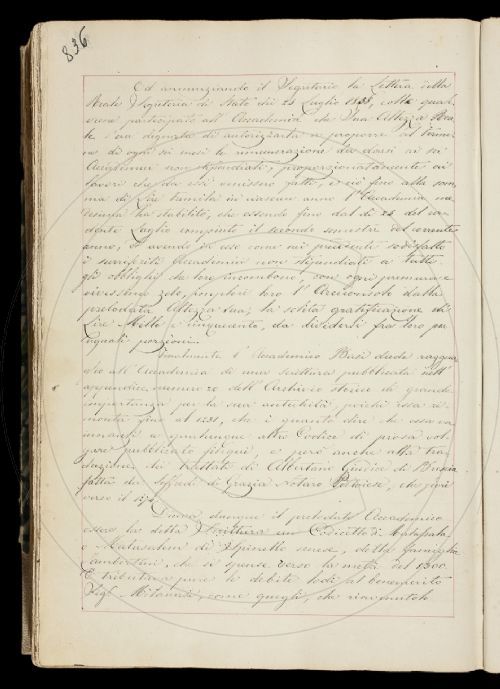 836
Ed annunziando il Segretario la Lettera della
Reale Segreteria di Stato del 24 Luglio colla quale
venne participato all' Accademia che Sua Altezza Rea-
le s'era degnata di autorizzarla a proporre al termi-
ne di ogni sei mesi la da darsi ai sei
Accademici non stipendiati, proporzionatamente ai
lavori che da essi venissero fatti, e ciò fino alla som-
ma di Lire tremila in ciascun anno l' Accademia me-
desima ha stabilito, che essendo fino dal dì 24 del ca-
dente Luglio compiuto il secondo semestre del corrente
anno, ed avendo in esso come nei precedenti sodisfatto
i Accademici non stipendiati a tutti
gli obblighi che loro incombono, con ogni premura e
vivissimo zelo, l' Arciconsolo dalla
prelodata Altezza Sua, la solita gratificazione di
Lire Mille e cinquecento, da dividersi fra loro per
uguali porzioni.
Finalmente l' Accademico Basi diede raggua-
glio all' Accademia di una scrittura pubblicata nell'
appendice numero 20 dell' Archivio storico di grande
importanza per la sua antichità, poichè essa ri-
monta fino al 1231, che è quanto dire che essa va
innanzi a qualunque altro Codice di prosa vol-
gare pubblicato fin qui, e però anche alla tra-
duzione dei trattati di Albertano Giudice di Brescia
fatta da Soffredi di Grazia Notaro Pistoiese, che
verso il
dunque il prelodato Accademico
essere la detta Scrittura un Codicetto di Matasala
o Matusalem di Spinello senese, della famiglia
Lambertini, che si spense verso la metà del 1300.
E tributava pure le debite lodi al benemerito
Sigr. Milanesi, come quegli, che rinvenutolo